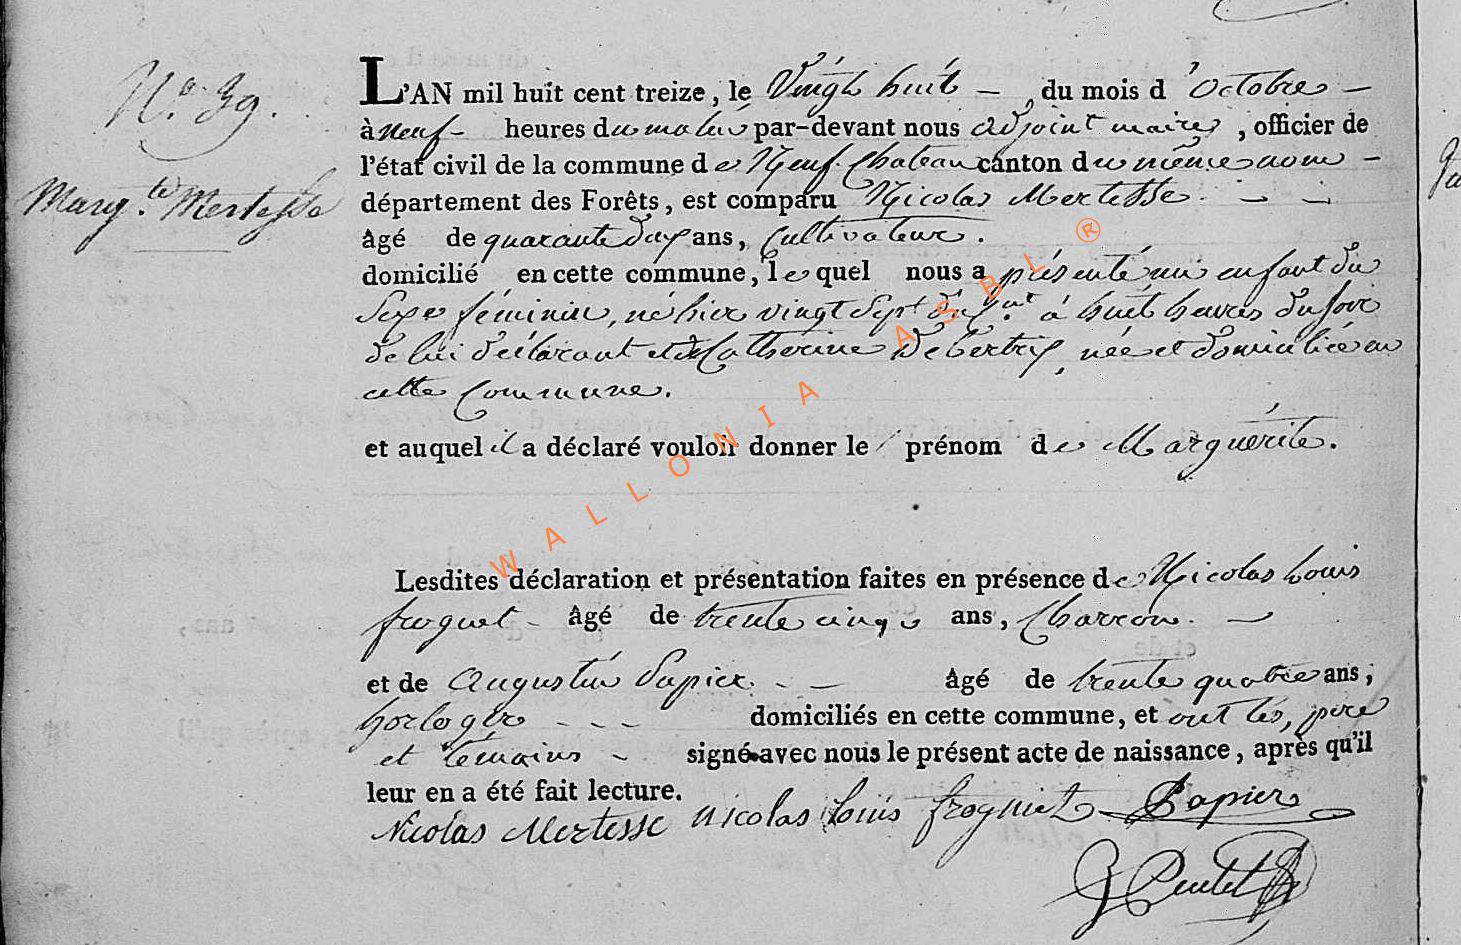 N.o 39.
Marg.te Mertesse
L'AN mil huit cent treize, le Vingt huit – , du mois d' Octobre –
à neuf – heures du matin par-devant nous adjoint maire, officier de
l'état civil de la commune de Neuf-Chateau canton du même nom –
département des Forêts, est comparu Nicolas Mertesse. – –
âgé de quarante deux ans, Cultivateur.
domicilié en cette commune, lequel nous a présenté un enfant du
Sexe féminin, né hier vingt Sept du à huit heures du soir
de lui déclarant et de Catherine née et domiciliée en
cette Commune.
et auquel il a déclaré vouloir donner le prénom de Marguérite.
Lesdites déclaration et présentation faites en présence de Nicolas Louis
frognet – âgé de trente cinq ans, Charron. –
et de Augustin Papier. – – âgé de trente quatre ans;
horloger – – – domiciliés en cette commune, et ont les, pere
et témoins – signé avec nous le présent acte de naissance, après qu'il
leur en a été fait lecture.
Nicolas Mertesse nicolas louis frogniet Papier
WALLONIA ASBL ®